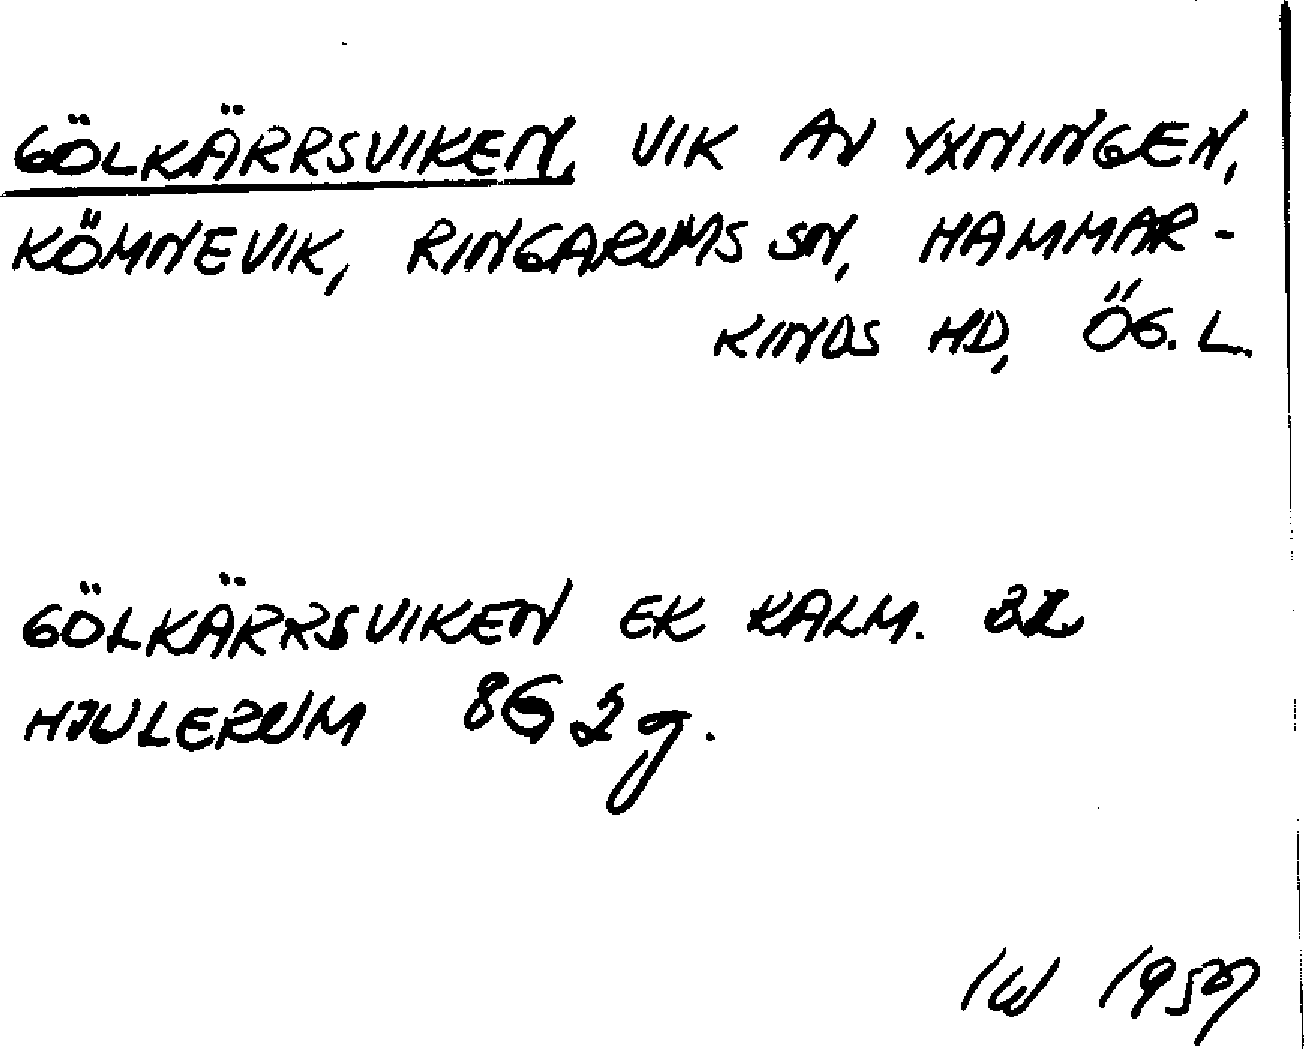 GÖLKÄRRSVIKEN, VIK AV YXNINGEN,
KÖMNEVIK, RINGARUMS SN, HAMMAR-
KINDS HD, ÖG. L.
GÖLKÄRRSVIKEN EK KALM.
HJULERUM 8G 2g.
IW 1959